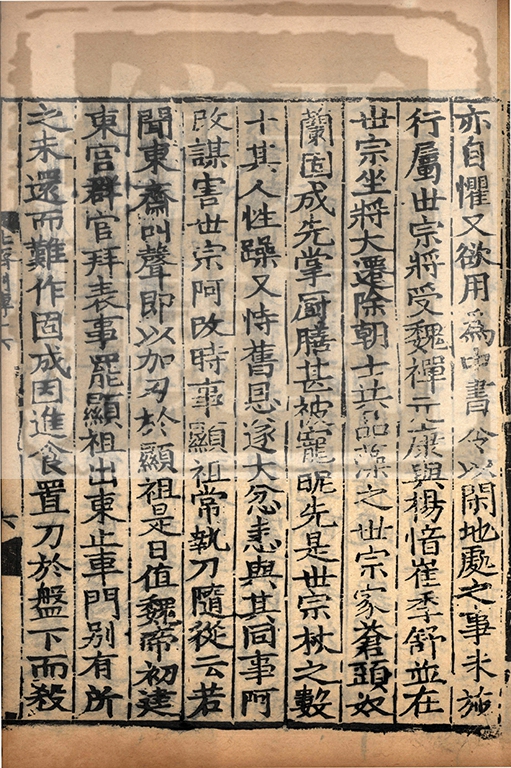 亦自懼又欲用為中書令以閑地處之事未施
行屬世宗將受魏禪元康與楊愔崔季舒並在
世宗坐將大遷除朝士共品藻之世宗家蒼頭奴
蘭固成先掌厨膳甚被寵昵先是世宗杖之數
十其人性躁又恃舊恩遂大忿恚與其同事阿
改謀害世宗阿改時事顯祖常執刀隨從云若
聞東齋叫聲即以加刃於顯祖是日值魏帝初建
東宮群官拜表事罷顯祖出東止車門別有所
之未還而難作固成因進食置刀於盤下而殺